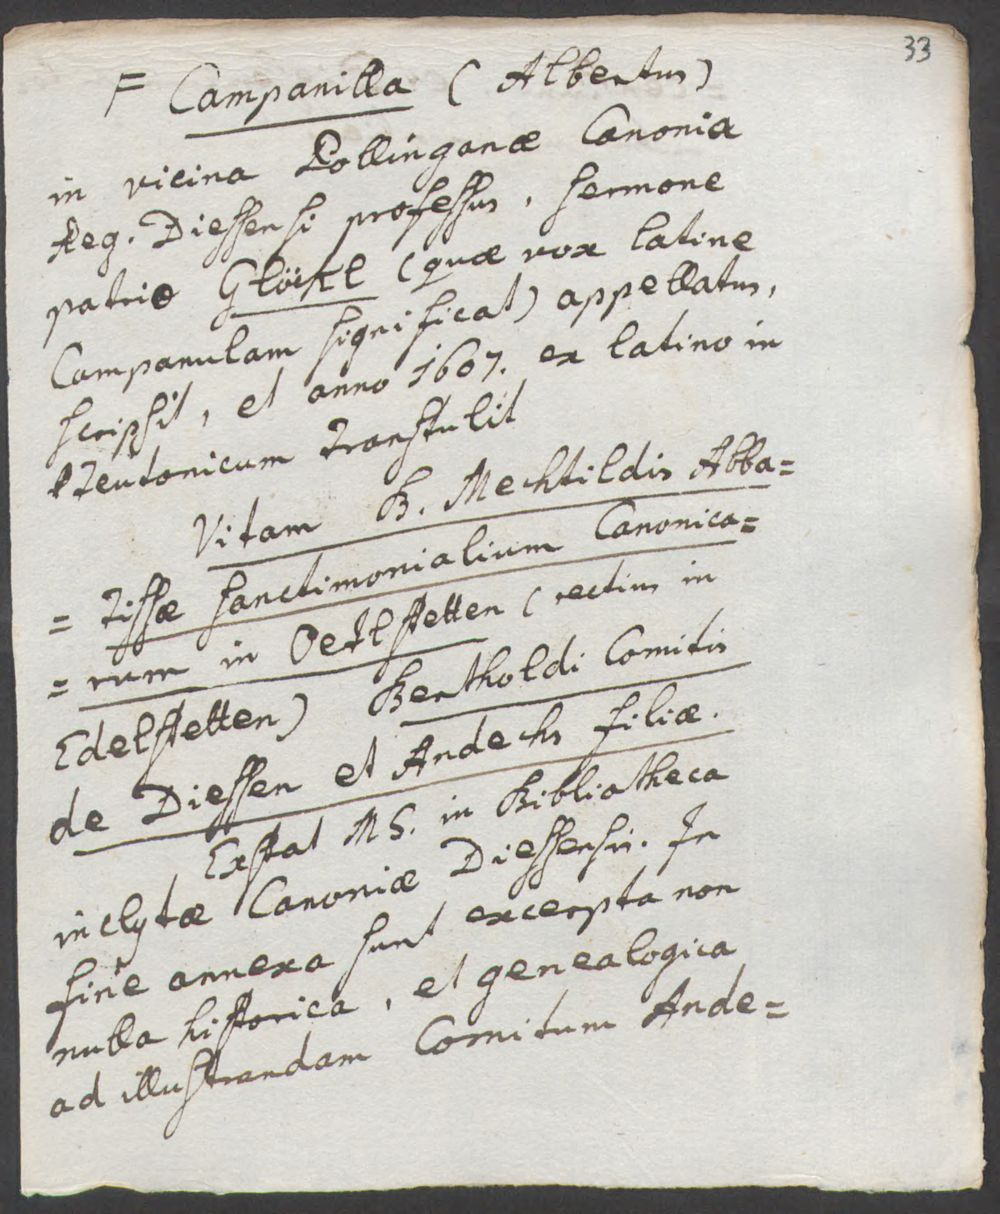 33
F Campanilla (Albertus)
in vicina Pollinganæ Canonia
Reg. Diessensi professus, sermone
patrio Glöckl (quæ vox latine
Campanulam significat) appellatus,
scripsit, et anno 1607. ex latino in
Teutonicum transtulit
Vitam B. Mechtildis Abba=
= tissæ sanctimonialium Canonica=
= rum in Oetlstetten (rectius in
Edelstetten) Bertholdi Comitis
de Diessen et Andechs filiæ.
Exstat MS. in Bibliotheca
inclytæ Canoniæ Diessensis. In
fine annexa sunt excerpta non
nulla historica, et genealogica
ad illustrandam Comitum Ande=